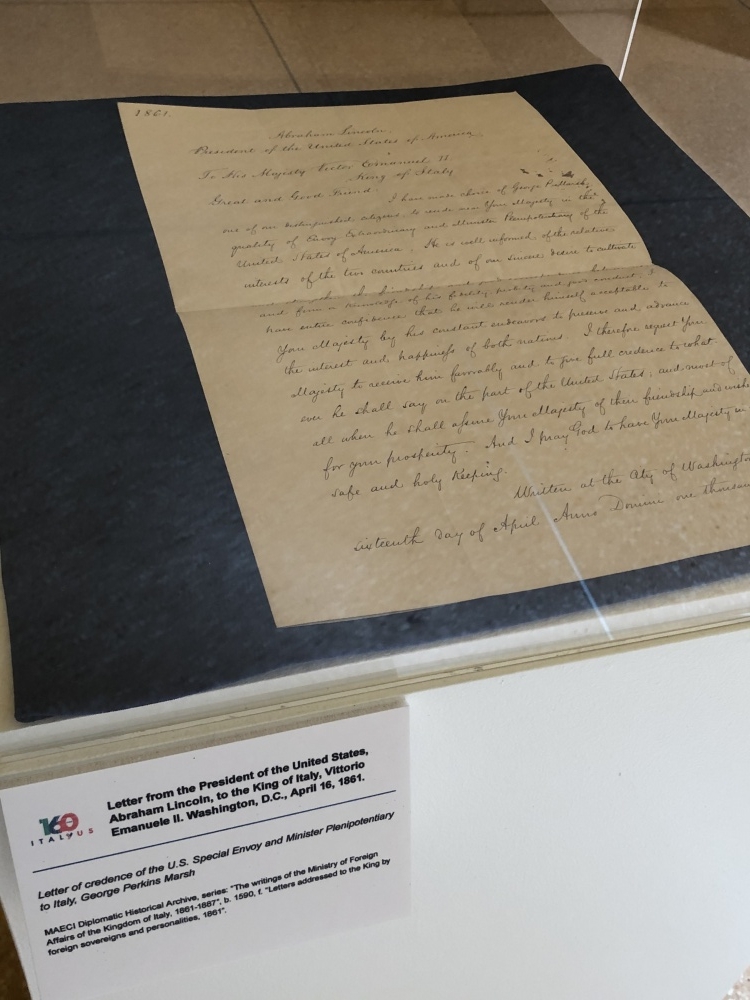 1861.
Abraham Lincoln.
President of the United States of America
To His Majesty Victor Emanuel II
King of Italy
Great and Good Friend.
I have made choice of George
one of our distinguished citizens to reside near Your Majesty in the
quality of Envoy Extraordinary and Minister Plenipotentiary of the
United States of America. He is well informed of the relative
interests of the two countries and of our sincere desire to cultivate
and from a knowledge of his fidelity probity and good conduct, I
have entire confidence that he will render himself acceptable to
Your Majesty by his constant endeavors to preserve and advance
the interest and happiness of both nations. I therefore request Your
Majesty to receive him favorably and to give full credence to what
ever he shall say on the part of the United States; and most of
all when he shall assure Your Majesty of their friendship and wishes
for your prosperity. And I pray God to have Your Majesty in
safe and holy Keeping.
Written at the City of Washington
sixteenth day of April Anno Domini one thousan
160
ITALY US
Letter from the President of the United States,
Abraham Lincoln, to the King of Italy, Vittorio
Emanuele II. Washington, D.C., April 16, 1861.
Letter of credence of the U.S. Special Envoy and Minister Plenipotentiary
to Italy, George Perkins Marsh
MAECI Diplomatic Historical Archive, series: "The writings of the Ministry of Foreign
Affairs of the Kingdom of Italy, 1861-1887", b. 1590, f. "Letters addressed to the King by
foreign sovereigns and personalities, 1861".